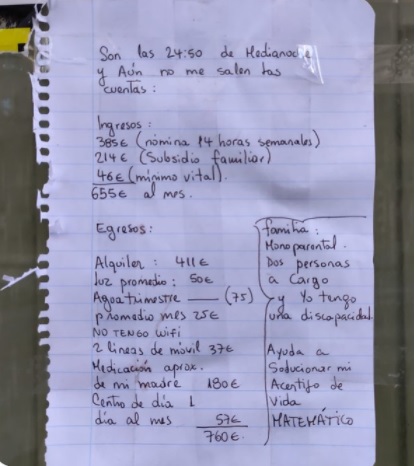 Son las 24:50 de Medianoche
y Aún no me salen las
cuentas:
Ingresos:
385€ (nómina 14 horas semanales)
214€ (Subsidio familiar)
46€ (mínimo vital).
655€ al mes.
Egresos:
Alquiler: 411€
Luz promedio: 50€
Agoa trimestre — (75)
promedio mes 25€
NO TENGO Wifi
2 lineas de móvil 37€
Medicación aprox.
de mi madre 180€
Centro de día 1
día al mes 57€
760€.
familia:
Monoparental.
Dos personas
a Cargo
y Yo tengo
una discapacidad.
Ayuda a
Soducionar mi
Acertijo de
Vida
MATEMÁTICO